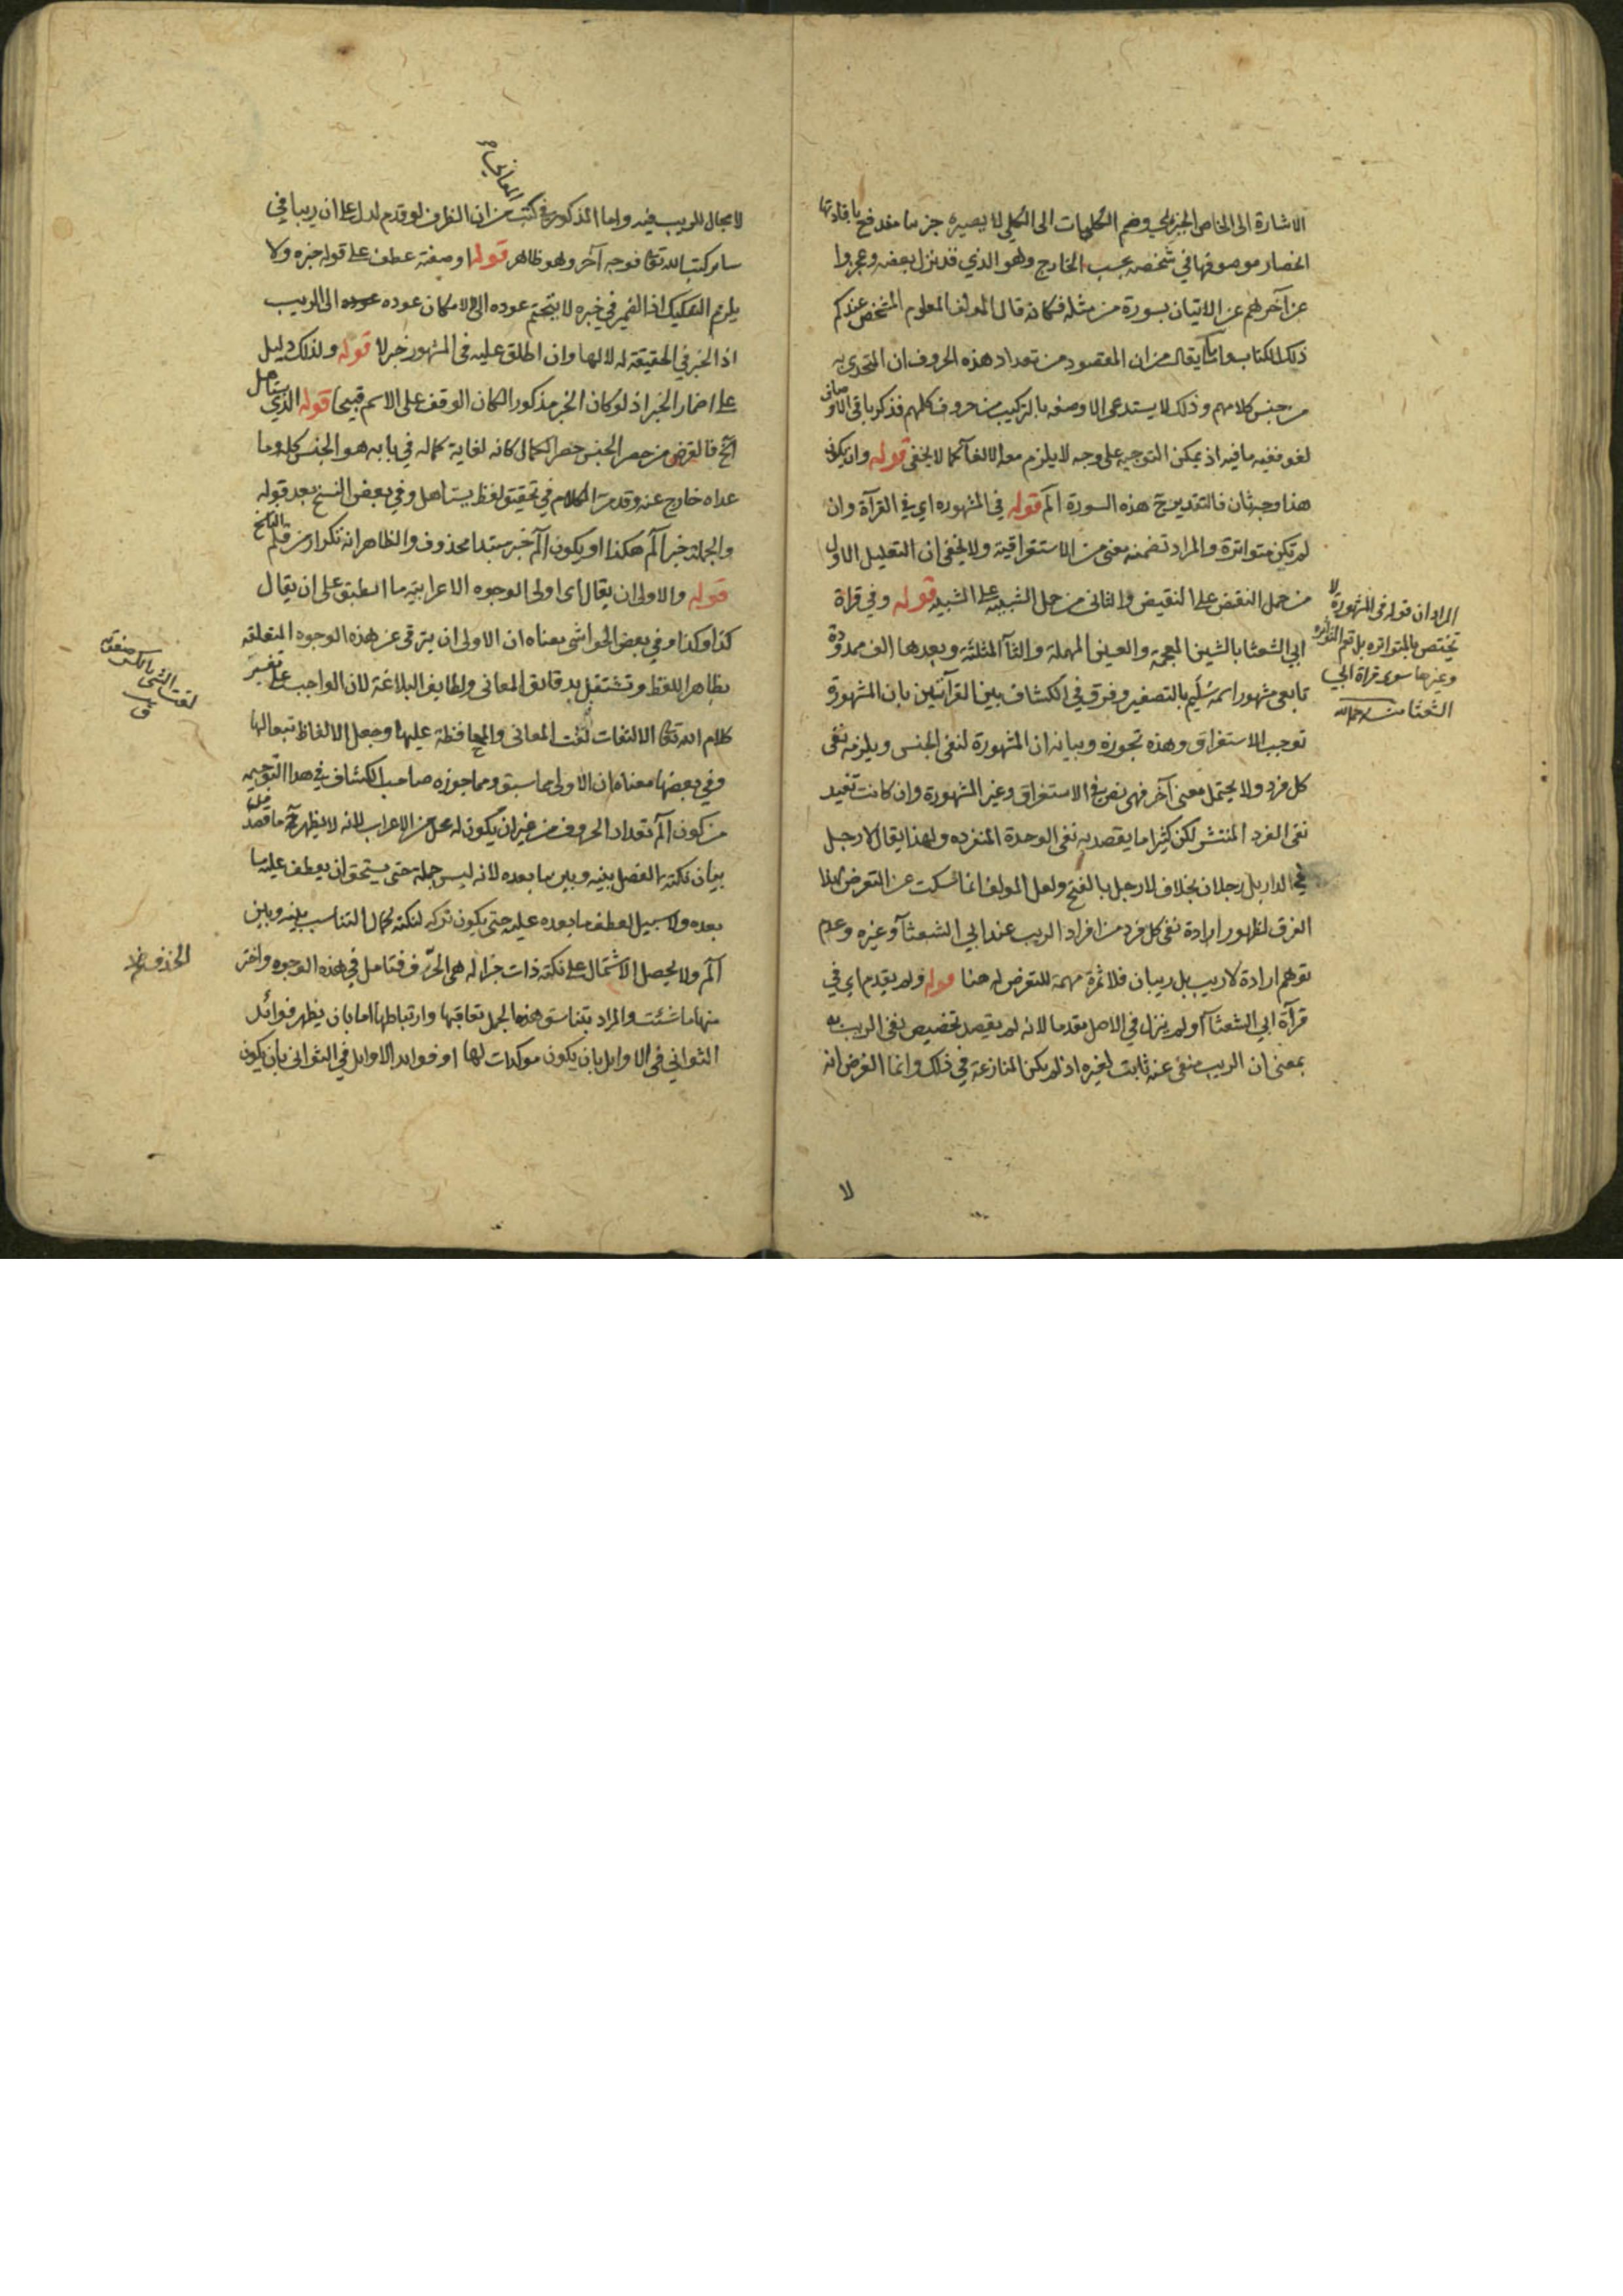 الاشارة الى الخاص الجزئي وضم الكليات الى الكلي لا يصيره جزئيا مندفع بافادتها
انحصار موصوفها في شخصه بحسب الخارج وهو الذي قد نزل بعضه وعجزوا
عن آخرهم عن الاتيان بسورة من مثله فكانه قال المولف المعلوم المشخص عندكم
ذلك الكتاب وما يقال من ان المقصود من تعداد هذه الحروف ان المتحدى به
من جنس كلامهم وذلك لا يستدعى الا وصفه بالتركيب من حروف كلهم فذكر باقى الاوصاف
لغو ففيه ما فيه اذ يمكن التوجيه على وجه لا يلزم معه الالغا كما لا يخفى قوله وان يكون
هذا وجه ثان فالتقدير ح هذه السورة الم قوله في المشهورة اي في القرآة وان
لم تكن متواترة والمراد تضمنه معنى من الاستغراقية ولا يخفى ان التعليل الاول
من حمل النقيض على النقيض والثانى من حمل الشبيه على الشبيه قوله وفي قراة
ابي الشعثا بالشين المعجمة والعين المهملة والثآ المثلثة وبعدها الف ممدودة
تابعى مشهور اسمه سُلَيم بالتصغير وفرق في الكشاف بين القرآتين بان المشهورة
توجب الاستغراق وهذه تجوزه وبيانه ان المشهورة لنفى الجنس ويلزمه نفى
كل فرد ولا يحتمل معنى آخر فهى نص في الاستغراق وغير المشهورة وان كانت تفيد
نفى الفرد المنتشر لكن كثيرا ما يقصد به نفى الوحدة المنفرده ولهذا يقال لا رجل
في الدار بل رجلان بخلاف لا رجل بالفتح ولعل المولف انما سكت عن التعرض لهذا
الفرق لظهور ارادة نفى كل فرد من افراد الريب عند ابي الشعثآ وغيره وعدم
توهم ارادة لا ريب بل ريبان فلا ثمرة مهمة للتعرض له هنا قوله ولم يقدم اي في
قرآة ابي الشعثآ او لم ينزل في الاصل مقدما لانه لم يقصد تخصيص نفى الريب به
بمعنى ان الريب منفى عنه ثابت لغيره اذ لم يكن المنازعة في ذلك وانما الغرض انه
لا
المراد ان قوله في المشهورة لا
تختص بالمتواترة بل تعم المتواترة
وغيرها سوى قراة ابي
الشعثا منه رحمه الله
لا مجال للريب فيه واما المذكور في كتب المعاني من ان الظرف لو قدم لدل على ان ريبا في
ساير كتب الله تعالى فوجه آخر وهو ظاهر قوله او صفته عطف على قوله خبره ولا
يلزم التفكيك اذ الضمير في خبره لا يتحتم عوده الى لا لامكان عوده الى الريب
اذ الخبر في الحقيقة له لا لها وان اطلق عليه في المشهور خبر لا قوله ولذلك دليل
على اضمار الخبر اذ لو كان الخبر مذكورا لكان الوقف على الاسم قبيحا قوله الذي يستاهل
الخ فالغرض من حصر الجنس حصر الكمال كانه لغاية كماله في بابه هو الجنس كله وما
عداه خارج عنه وقد مر الكلام في تحقيق لفظ يستاهل وفي بعض النسخ بعد قوله
والجملة خبر الم هكذا او يكون الم خبر مبتدا محذوف والظاهر انه تكرار من قلم الناسخ
قوله والاولى ان يقال اى اولى الوجوه الاعرابية ما انطبق على ان يقال
كذا وكذا وفي بعض الحواشى معناه ان الاولى ان يترقى عن هذه الوجوه المتعلقة
بظاهر اللفظ وتشتغل بدقايق المعانى ولطايف البلاغة لان الواجب على تفسير
كلام الله تعالى الالتفات لفت المعانى والمحافظة عليها وجعل الالفاظ تبعا لها
وفي بعضها معناه ان الاولى مما سبق ومما جوزه صاحب الكشاف في هذا التوجيه
من كون الم تعداد الحروف من غير ان يكون له محل من الاعراب لانه لا يظهر ح ما قصد من
بيان نكتة الفصل بينه وبين ما بعده لانه ليس جملة حتى يستحق ان يعطف عليه ما
بعده ولا سبيل لعطف ما بعده عليه حتى يكون تركه لنكتة كمال التناسب بينه وبين
الم ولا يحصل الاشتمال على نكتة ذات جزالة هى الحذف فتامل في هذه الوجوه واختر
منها ما شئت والمراد بتناسق هذه الجمل تعاقبها وارتباطها اما بان يظهر فوائد
الثواني فى الاوايل بان يكون موكدات لها او فوايد الاوايل في الثوانى بان يكون
لفت الشى بالكسر صفته
ق
الحذف